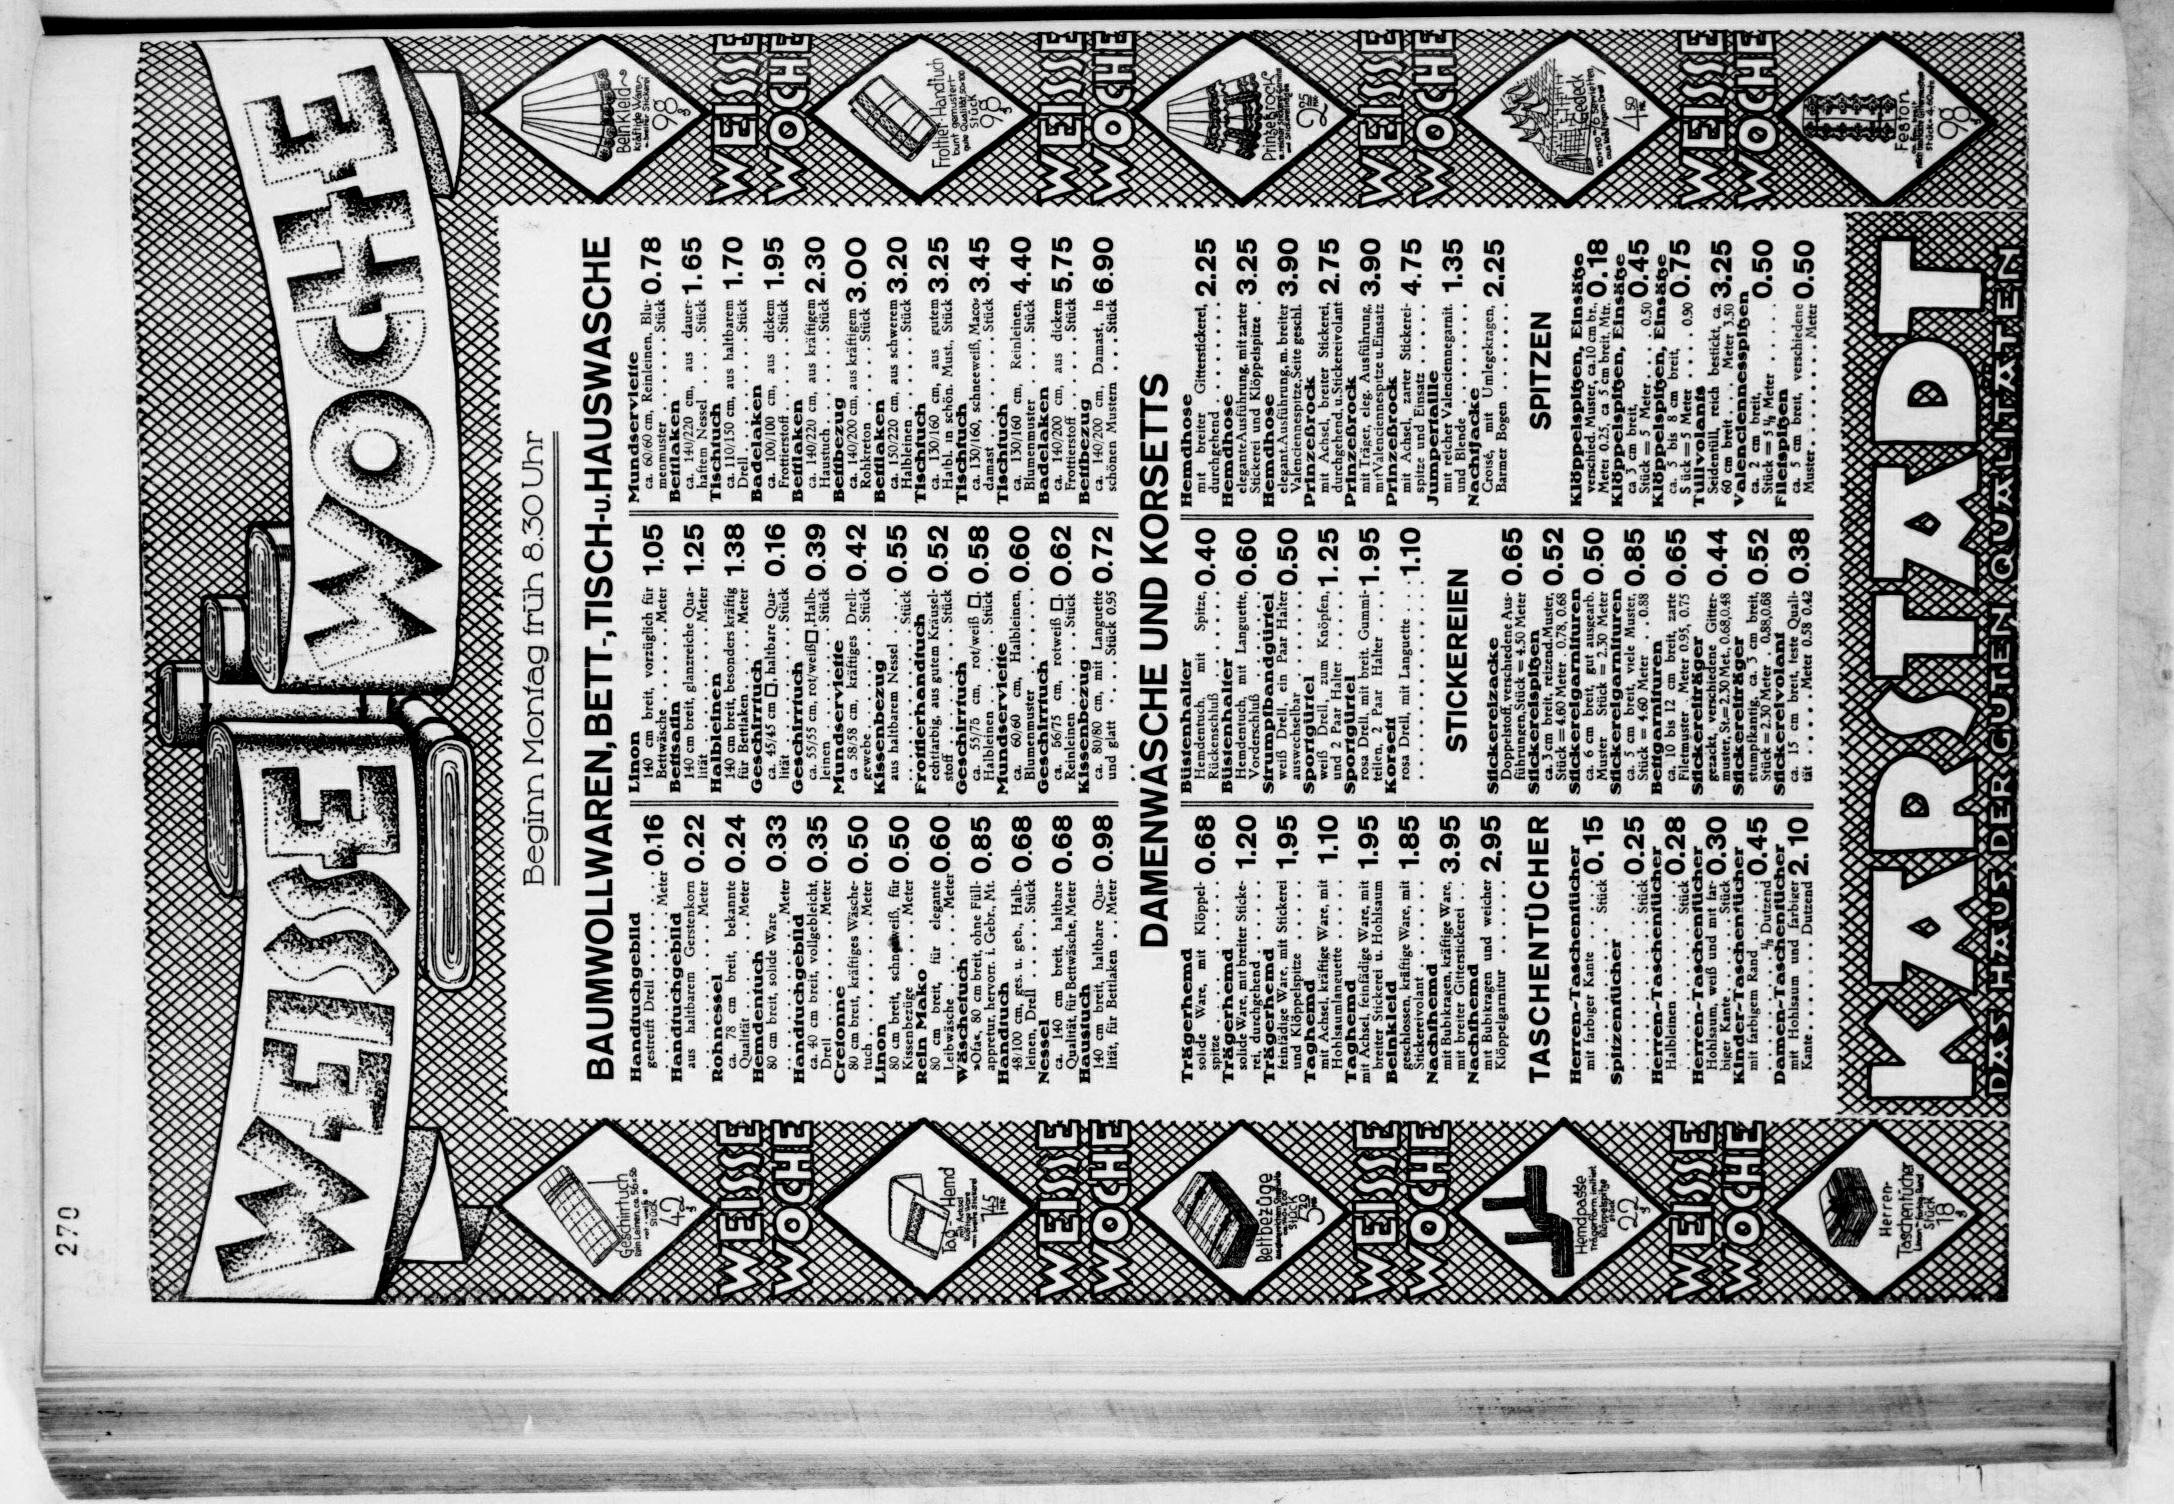 270
WEISSE WOCHE
Beginn Montag früh 8.30 Uhr
BAUMWOLLWAREN, BETT-, TISCH- u. HAUSWÄSCHE
Handtuchgebild
gestreift Drell . . . . .
. . . . . . . . Meter 0.16
Handtuchgebild
aus haltbarem Gerstenkorn
. . . . . . . . Meter 0.22
Rohnessel
ca. 78 cm breit, bekannte
Qualität . . . . Meter 0.24
Hemdentuch
80 cm breit, solide Ware
. . . . . . . . Meter 0.33
Handtuchgebild
ca. 40 cm breit, vollgebleicht,
Drell . . . . . Meter 0.35
Cretonne
80 cm breit, kräftiges Wäsche-
tuch . . . . . Meter 0.50
Linon
80 cm breit, schneeweiß, für
Kissenbezüge . . Meter 0.50
Rein Mako
80 cm breit, für elegante
Leibwäsche . . . Meter 0.60
Wäschetuch
»Ofa«, 80 cm breit, ohne Füll-
appretur, hervorr. i. Gebr., Mt. 0.85
Handtuch
48/100 cm, ges. u. geb., Halb-
leinen, Drell . . . Stück 0.68
Nessel
ca. 140 cm breit, haltbare
Qualität, für Bettwäsche, Meter 0.68
Haustuch
140 cm breit, haltbare Qua-
lität, für Bettlaken . . Meter 0.98
Linon
140 cm breit, vorzüglich für
Bettwäsche . . . . Meter 1.05
Bettsatin
140 cm breit, glanzreiche Qua-
lität . . . . . Meter 1.25
Halbleinen
140 cm breit, besonders kräftig
für Bettlaken . . . Meter 1.38
Geschirrtuch
ca. 45/45 cm □, haltbare Qua-
lität . . . . . Stück 0.16
Geschirrtuch
ca. 55/55 cm, rot/weiß □, Halb-
leinen . . . . . Stück 0.39
Mundserviette
ca 58/58 cm, kräftiges Drell-
gewebe . . . . . Stück 0.42
Kissenbezug
aus haltbarem Nessel . . .
. . . . . . . . Stück 0.55
Frottierhandtuch
echtfarbig, aus gutem Kräusel-
stoff . . . . . Stück 0.52
Geschirrtuch
ca. 55/75 cm, rot/weiß □,
Halbleinen . . . . Stück 0.58
Mundserviette
ca. 60/60 cm, Halbleinen,
Blumenmuster . . . . . 0.60
Geschirrtuch
ca. 56/75 cm, rotweiß □,
Reinleinen . . . . Stück 0.62
Kissenbezug
ca. 80/80 cm, mit Languette
und glatt . . . . Stück 0.95 0.72
Mundserviette
ca. 60/60 cm, Reinleinen, Blu-
menmuster . . . . Stück 0.78
Bettlaken
ca. 140/220 cm, aus dauer-
haftem Nessel . . . Stück 1.65
Tischtuch
ca. 110/150 cm, aus haltbarem
Drell . . . . . Stück 1.70
Badelaken
ca. 100/100 cm, aus dickem
Frottierstoff . . . . Stück 1.95
Bettlaken
ca. 140/220 cm, aus kräftigem
Haustuch . . . . . Stück 2.30
Bettbezug
ca. 140/200 cm, aus kräftigem
Rohkreton . . . . . Stück 3.00
Bettlaken
ca. 150/220 cm, aus schwerem
Halbleinen . . . . Stück 3.20
Tischtuch
ca. 130/160 cm, aus gutem
Halbl. in schön. Must., Stück 3.25
Tischtuch
ca. 130/160, schneeweiß, Maco-
damast . . . . . Stück 3.45
Tischtuch
ca. 130/160 cm, Reinleinen,
Blumenmuster . . . Stück 4.40
Badelaken
ca. 140/200 cm, aus dickem
Frottierstoff . . . . Stück 5.75
Bettbezug
ca. 140/200 cm, Damast, in
schönen Mustern . . . Stück 6.90
DAMENWÄSCHE UND KORSETTS
Trägerhemd
solide Ware, mit Klöppel-
spitze . . . . . . . 0.68
Trägerhemd
solide Ware, mit breiter Sticke-
rei, durchgehend . . . . 1.20
Trägerhemd
feinfädige Ware, mit Stickerei
und Klöppelspitze . . . . 1.95
Taghemd
mit Achsel, kräftige Ware, mit
Hohlsaumlanguette . . . . 1.10
Taghemd
mit Achsel, feinfädige Ware, mit
breiter Stickerei u. Hohlsaum 1.95
Beinkleid
geschlossen, kräftige Ware, mit
Stickereivolant . . . . . 1.85
Nachthemd
mit Bubikragen, kräftige Ware,
mit breiter Gitterstickerei . . 3.95
Nachthemd
mit Bubikragen und weicher
Klöppelgarnitur . . . . . 2.95
TASCHENTÜCHER
Herren-Taschentücher
mit farbiger Kante . . Stück 0.15
Spitzentücher
. . . . . . . . Stück 0.25
Herren-Taschentücher
Halbleinen . . . . Stück 0.28
Herren-Taschentücher
Hohlsaum, weiß und mit far-
biger Kante . . . Stück 0.30
Kinder-Taschentücher
mit farbigem Rand ½ Dutzend 0.45
Damen-Taschentücher
mit Hohlsaum und farbiger
Kante . . . . . Dutzend 2.10
Büstenhalter
Hemdentuch, mit Spitze,
Rückenschluß . . . . . 0.40
Büstenhalter
Hemdentuch, mit Languette,
Vorderschluß . . . . . 0.60
Strumpfbandgürtel
weiß Drell, ein Paar Halter
auswechselbar . . . . . 0.50
Sportgürtel
weiß Drell, zum Knöpfen,
und 2 Paar Halter . . . . 1.25
Sportgürtel
rosa Drell, mit breit. Gummi-
teilen, 2 Paar Halter . . . 1.95
Korsett
rosa Drell, mit Languette . . 1.10
STICKEREIEN
Stickereizacke
Doppelstoff, verschiedene Aus-
führungen, Stück = 4.50 Meter 0.65
Stickereispitzen
ca. 3 cm breit, reizend. Muster,
Stück = 4.60 Meter . 0.78, 0.68 0.52
Stickereigarnituren
ca. 6 cm breit, gut ausgearb.
Muster Stück = 2.30 Meter 0.50
Stickereigarnituren
ca. 5 cm breit, viele Muster,
Stück = 4.60 Meter . . 0.88 0.85
Bettgarnituren
ca. 10 bis 12 cm breit, zarte
Filetmuster . Meter 0.95, 0.75 0.65
Stickereiträger
gezackt, verschiedene Gitter-
muster, St. = 2.30 Met., 0.68, 0.48 0.44
Stickereiträger
stumpfkantig, ca. 3 cm breit,
Stück = 2.30 Meter 0.88, 0.68 0.52
Stickereivolant
ca. 15 cm breit, feste Quali-
tät . . . . . Meter 0.58 0.42 0.38
Hemdhose
mit breiter Gitterstickerei,
durchgehend . . . . . 2.25
Hemdhose
elegante Ausführung, mit zarter
Stickerei und Klöppelspitze . 3.25
Hemdhose
elegant. Ausführung, m. breiter
Valenciennespitze, Seite geschl. 3.90
Prinzeßrock
mit Achsel, breiter Stickerei,
durchgehend, u. Stickereivolant 2.75
Prinzeßrock
mit Träger, eleg. Ausführung,
mit Valenciennespitze u. Einsatz 3.90
Prinzeßrock
mit Achsel, zarter Stickerei-
spitze und Einsatz . . . . 4.75
Jumpertaille
mit reicher Valenciennegarnit.
und Blende . . . . . . 1.35
Nachtjacke
Croisé, mit Umlegekragen,
Barmer Bogen . . . . . 2.25
SPITZEN
Klöppelspitzen, Einsätze
verschied. Muster, ca. 10 cm br.,
Meter 0.25, ca 5 cm breit, Mtr. 0.18
Klöppelspitzen, Einsätze
ca 3 cm breit,
Stück = 5 Meter . . . 0.50 0.45
Klöppelspitzen, Einsätze
ca. 5 bis 8 cm breit,
Stück = 5 Meter . . . 0.90 0.75
Tüllvolants
Seidentüll, reich bestickt, ca.
60 cm breit . . . Meter 3.50 3.25
Valenciennesspitzen
ca. 2 cm breit,
Stück = 5½ Meter . . . . 0.50
Filetspitzen
ca. 5 cm breit, verschiedene
Muster . . . . . Meter 0.50
Geschirrtuch
Rein Leinen, ca. 56x56
Stück
42
WEISSE WOCHE
Tag-Hemd
1.45
WEISSE WOCHE
Bettbezüge
Stück
WEISSE WOCHE
Hemdpasse
Trägerform, imitiert
Klöppelspitze
Stück
22
WEISSE WOCHE
Herren-
Taschentücher
Stück
18
Beinkleid
kräftige Ware
98
WEISSE WOCHE
Frottier-Handtuch
bunt gemustert
gute Qualität 50x100
Stück
98
WEISSE WOCHE
Prinzeßrock
2.25
WEISSE WOCHE
Teegedeck
4.50
WEISSE WOCHE
Feston
98
KARSTADT
DAS HAUS DER GUTEN QUALITÄTEN